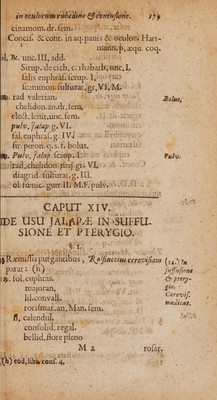 in oculorum rubedine & contusione. 179
cinamom. dr. sem.
Concis. & cont. in aq. panis & oculor. Hart-
mann. p. æqu. coq.
&. unc. III, add.
Sirup. de cich. c. rhabarb. unc. I,
salis euphras. scrup. I,
scammon. sulfurat. gr. VI, M.
rad valerian. Bolus.
chelidon. an. dr. sem.
elect. lenit. unc. sem.
pulv. jalap. g. VI.
sal. euphras. g. IV.
sir. peron. q. s. f. bolus.
Pulv. jalap. scrup. I. Pulv.
rad. chelidon. maj. gr. VI.
diagrid. sulfurat. g. III.
ol. fœnic. gutt. II. M. F. pulv.
CAPUT XIV.
DE USU JALAPÆ IN SUFFU-
SIONE ET PTERYGIO.
§. I.
Præmissis purgantibus, Rosmarinus cerevisiam (14.) In
parat: (h) suffusione
fol. euphras. & ptery-
majoran. gio.
lil. convall. Cerevis.
rorismar. an. Man. sem. medicat.
fl. calendul.
consolid. regal.
bellid. flore pleno
M 2 rosar.
(h) eod. lib. conf. 4.